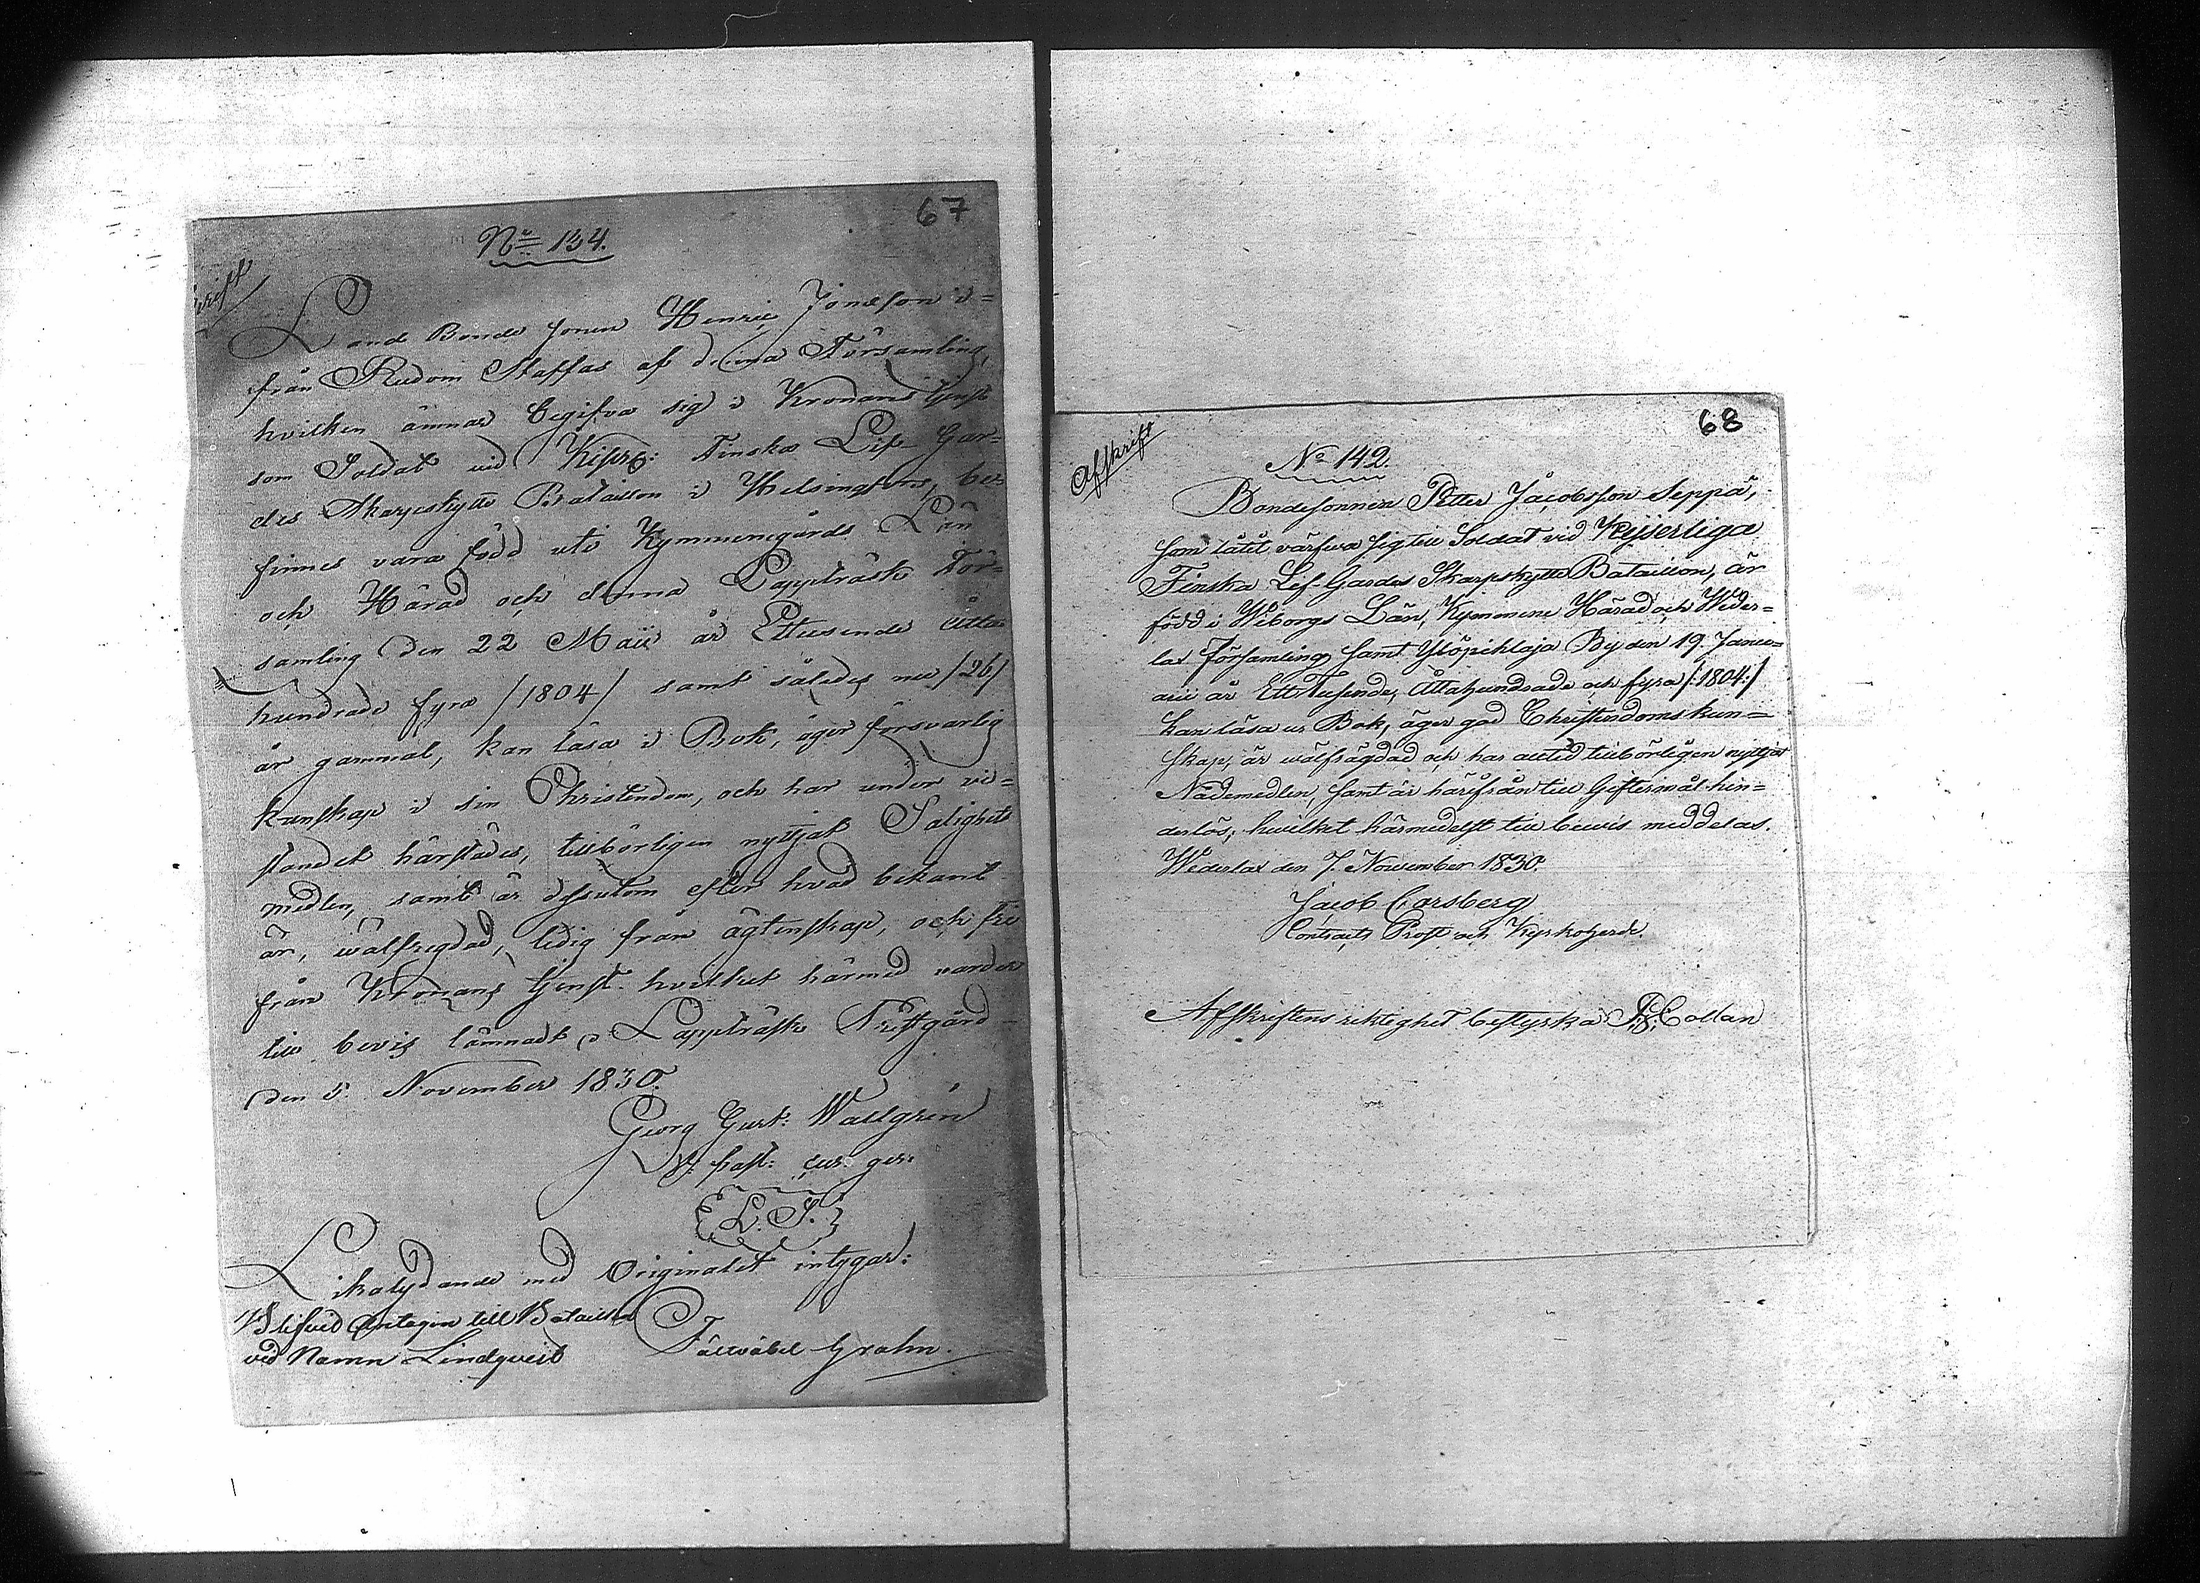 67
No 134.
Land Bonde sonen Henric Jonæson i=
från Rudom Staffas af denna Församling,
hvilken ämnar begifva sig i Kronans tjenst
som Soldat vid Kejsrl: Finska Lif-Gar=
des Skarpskytte Bataillon i Helsingfors, be=
finnes vara född uti Kymmenegårds Län
och Härad och denna Lappträsk För=
samling den 22 Maii år Ettusende åtta
hundrade fyra /1804/ samt således nu /26/
år gammal, kan läsa i Bok, äger försvarlig
kunskap i sin Christendom, och har under vi=
standet härstädes, tillbörligen nyttjat Salighets
medlen, samt är dessutom efter hvad bekant
är, wälfrejdad, ledig från ägtenskap, och fri
från Kronans tjenst. hvilket härmed varder
till bevis lämnadt, Lappträsk Prestgård
den 5. November 1830.
Georg Gust: Wallgrén
V: past: cur. ger:
L. S.
Likalydande med Originalet intygar:
Fältväbel Grahn.
Blifvid Antagen till Bataillon
vid Namn Lindqveist
68
Afskrift
No 142.
Bondesonnen Petter Jacobsson Seppä,
som låtit värfva sig till Soldat vid Kejserliga
Finska Lif-Gardes Skarpskytte Bataillon, är
född i Wiborgs Län, Kymmene Härad och Weder=
lax Församling samt Yli Pihlaja By den 19. Janu=
arii år Ett Tusende, Åttahundrade och fyra /:1804:/
kan läsa i Bok, äger god Christendoms kun=
skap, är wälfrägdad och har alltid tillbörligen nyttjat
Nådemedlen, samt är härifrån till Giftermål hin=
derlös; hwilket härmedelst till bewis meddelas.
Wederlax den 7. November 1830.
Jacob Carsberg
Contracts Prost och Kyrkoherde.
Afskriftens riktighet bestyrka Collan